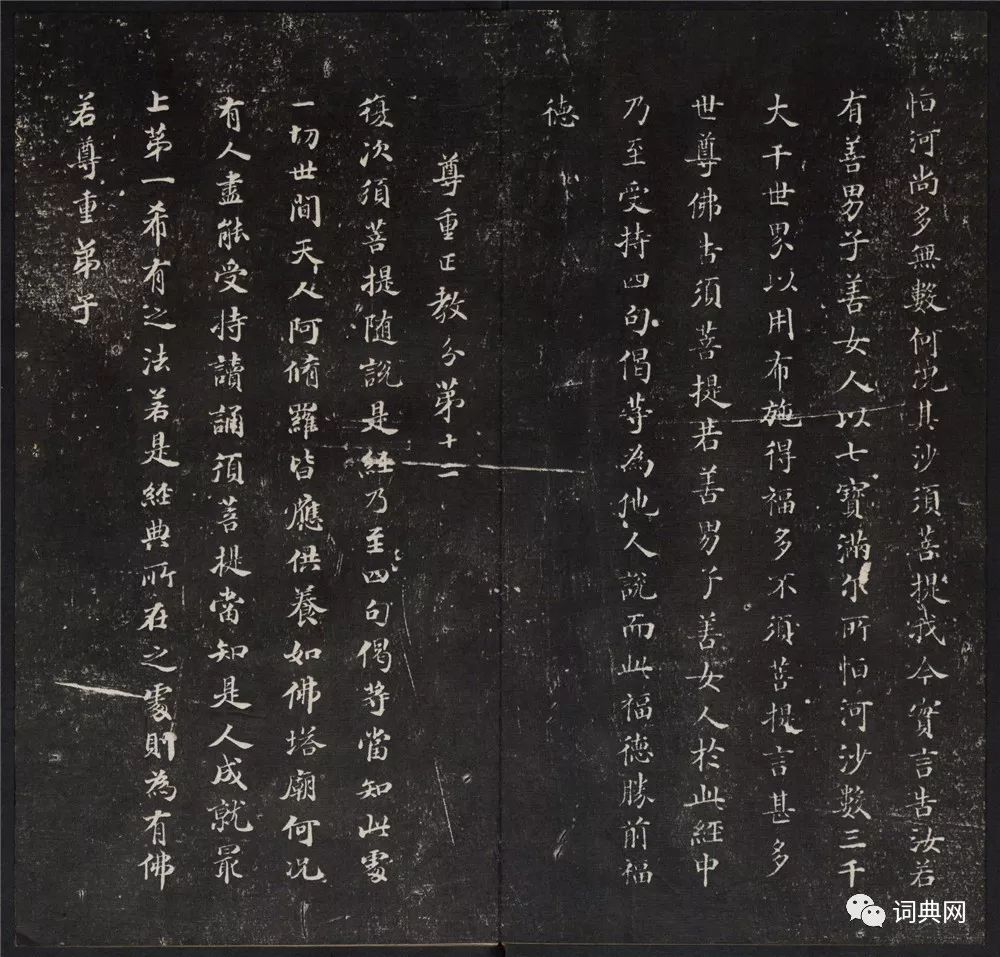 怕河尚多無數何况其沙須菩提我今實言告汝若
有善男子善女人以七寶滿尔所怕河沙數三千
大千世界以用布施得福多不須菩提言甚多
世尊佛告須菩提若善男子善女人於此經中
乃至受持四句偈等為他人說而此福德勝前福
德
尊重正教分第十二
復次須菩提随說是經乃至四句偈等當知此處
一切世間天人阿脩羅皆應供養如佛塔廟何况
有人盡能受持讀誦須菩提當知是人成就最
上第一希有之法若是經典所在之處則為有佛
若尊重弟子
词典网